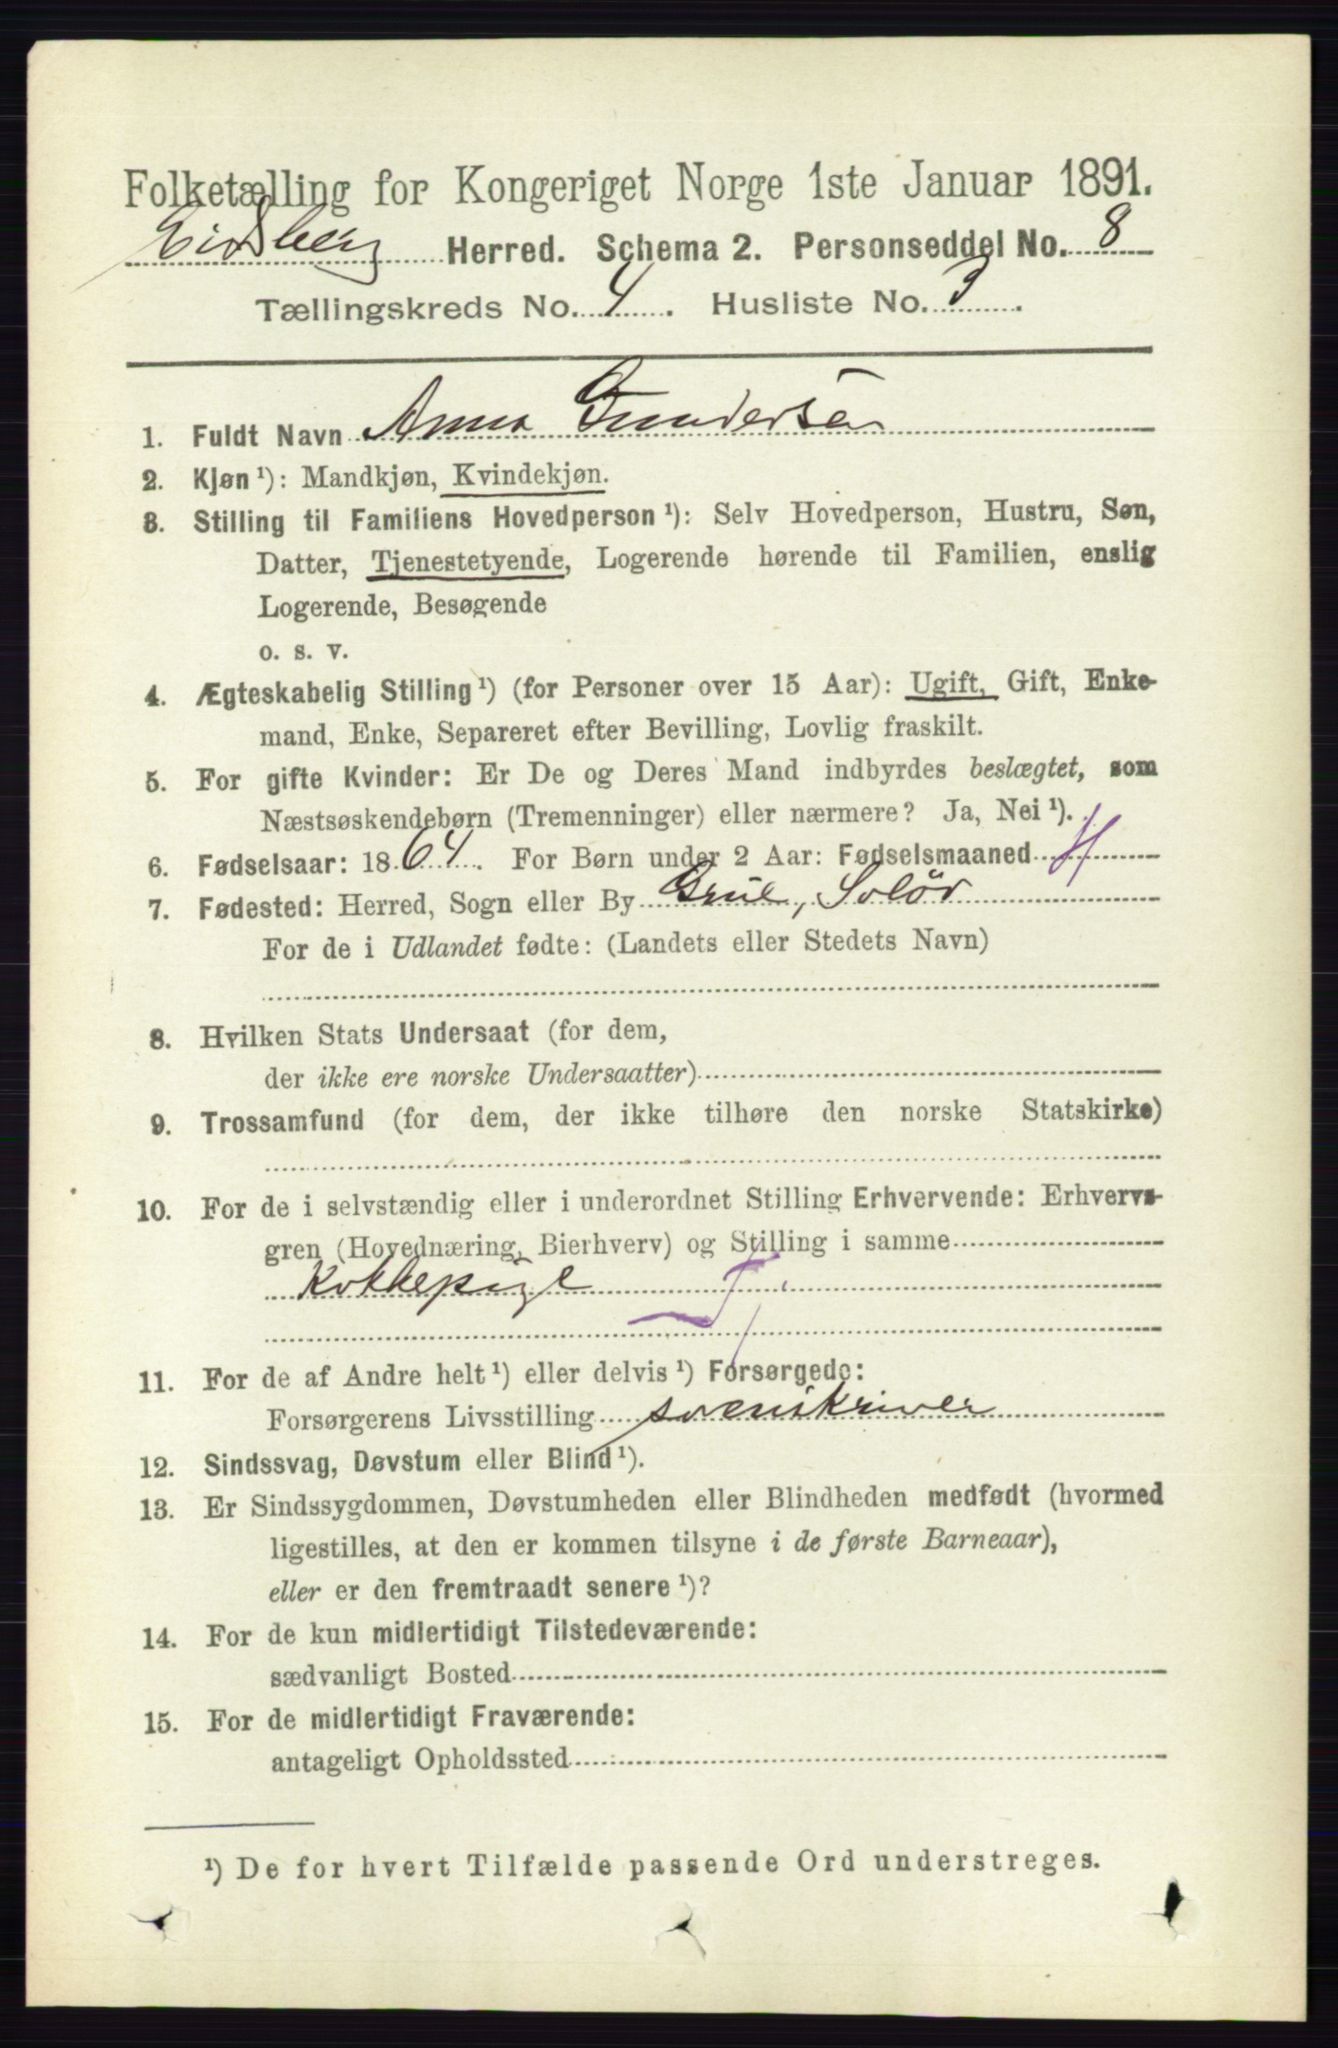 Folketælling for Kongeriget Norge 1ste Januar 1891.
Eidsberg Herred. Schema 2. Personseddel No. 8
Tællingskreds No. 4. Husliste No. 3.
1. Fuldt Navn Anna Gundersen
2. Kjøn ¹): Mandkjøn, Kvindekjøn.
3. Stilling til Familiens Hovedperson ¹): Selv Hovedperson, Hustru, Søn,
Datter, Tjenestetyende, Logerende hørende til Familien, enslig
Logerende, Besøgende
o. s. v.
4. Ægteskabelig Stilling ¹) (for Personer over 15 Aar): Ugift, Gift, Enke-
mand, Enke, Separeret efter Bevilling, Lovlig fraskilt.
5. For gifte Kvinder: Er De og Deres Mand indbyrdes beslægtet, som
Næstsøskendebørn (Tremenninger) eller nærmere? Ja, Nei ¹).
6. Fødselsaar: 1864. For Børn under 2 Aar: Fødselsmaaned
7. Fødested: Herred, Sogn eller By Grue, Solör
For de i Udlandet fødte: (Landets eller Stedets Navn)
8. Hvilken Stats Undersaat (for dem,
der ikke ere norske Undersaatter)
9. Trossamfund (for dem, der ikke tilhøre den norske Statskirke)
10. For de i selvstændig eller i underordnet Stilling Erhvervende: Erhvervs-
gren (Hovednæring, Bierhverv) og Stilling i samme
Kokkepige
11. For de af Andre helt ¹) eller delvis ¹) Forsørgede:
Forsørgerens Livsstilling
12. Sindssvag, Døvstum eller Blind ¹).
13. Er Sindssygdommen, Døvstumheden eller Blindheden medfødt (hvormed
ligestilles, at den er kommen tilsyne i de første Barneaar),
eller er den fremtraadt senere ¹)?
14. For de kun midlertidigt Tilstedeværende:
sædvanligt Bosted
15. For de midlertidigt Fraværende:
antageligt Opholdssted
¹) De for hvert Tilfælde passende Ord understreges.